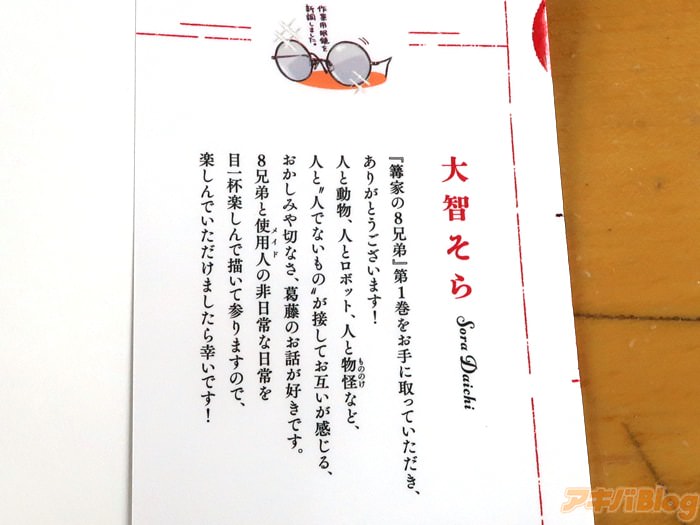 作業用眼鏡を
新調しました。
大智そら
Sora Daichi
『篝家の8兄弟』第1巻をお手に取っていただき、
ありがとうございます!
人と動物、人とロボット、人と物怪など、
もののけ
人と〝人でないもの〟が接してお互いが感じる、
おかしみや切なさ、葛藤のお話が好きです。
8兄弟と使用人の非日常な日常を
メイド
目一杯楽しんで描いて参りますので、
楽しんでいただけましたら幸いです!
アキバBlog